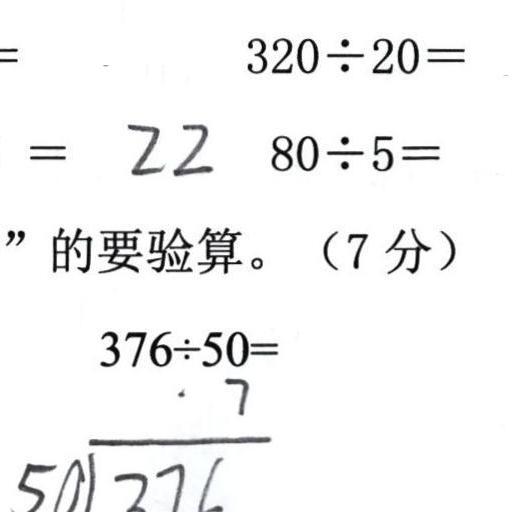 = 320÷20=
= 22 80÷5=
”的要验算。（7分）
376÷50=
7
50 376